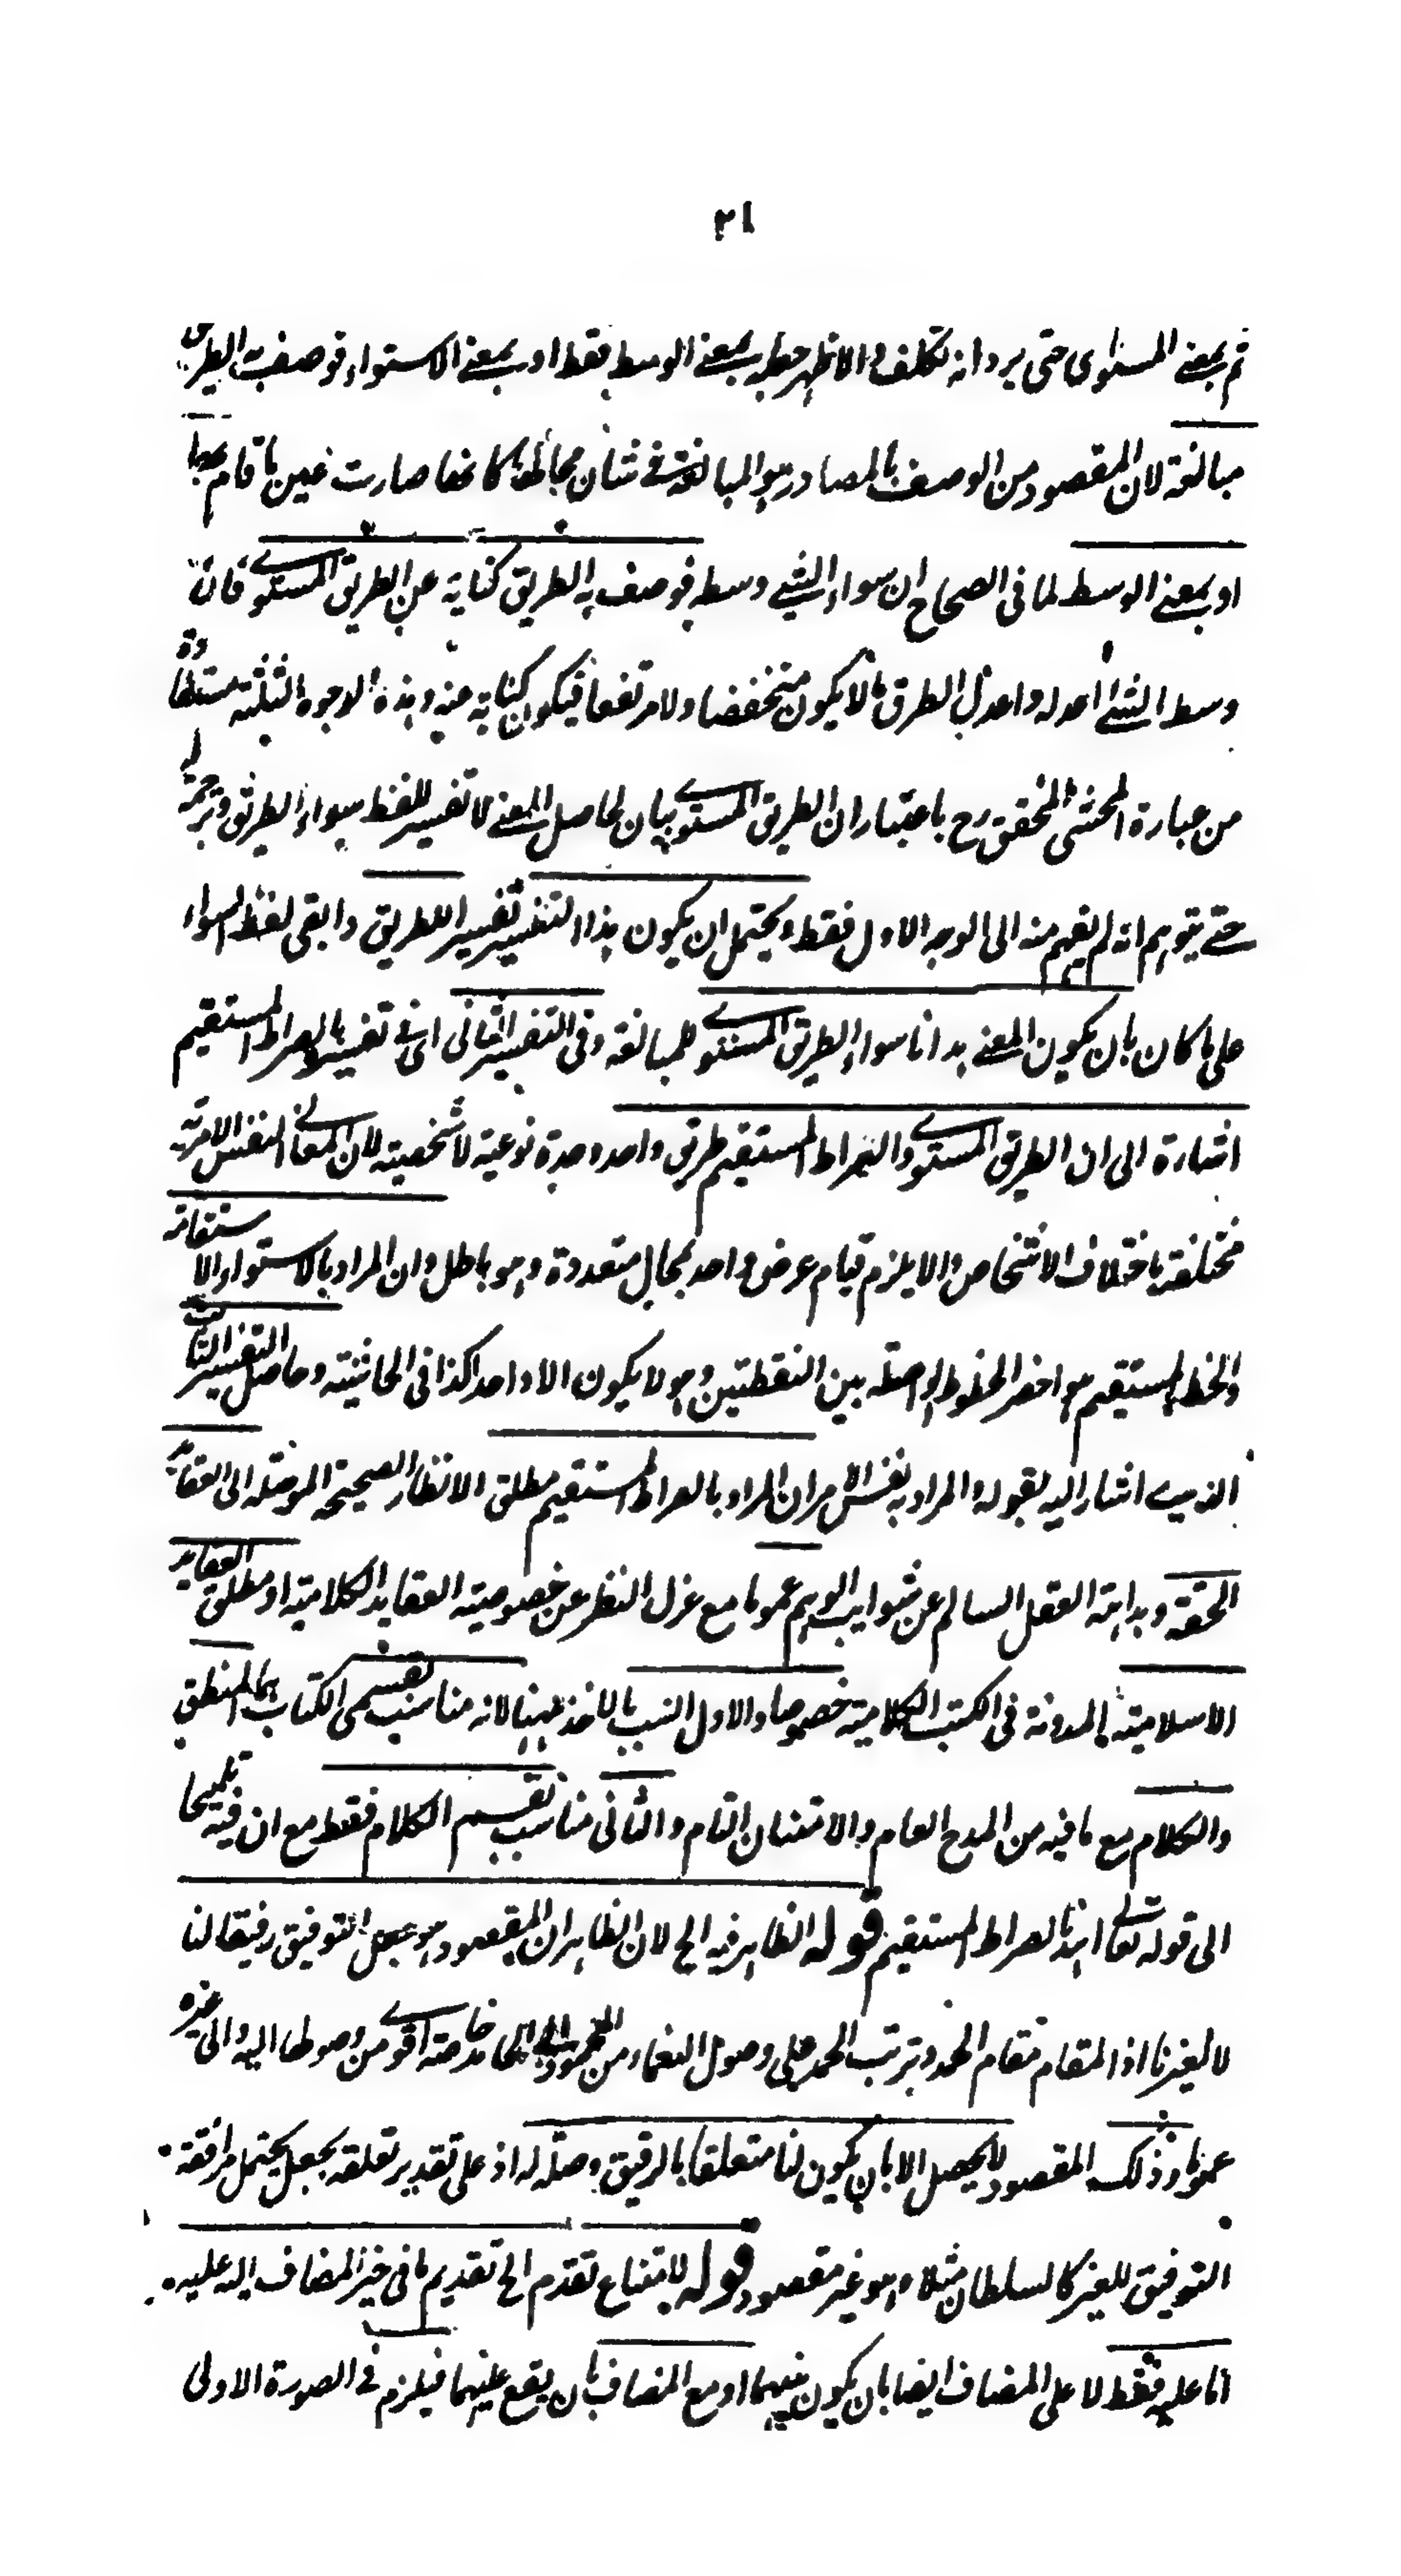 ٢١
ثم بمعنى المستوى حتى يرد انه تكلف والاظهر جعله بمعنى الوسط فقط او بمعنى الاستواء فوصف به الطريق
مبالغة لان المقصود من الوصف بالمصادر هو المبالغة في شأن محالها كانها صارت عين ما قام بها
او بمعنى الوسط لما في الصحاح ان سواء الشيء وسطه فوصف به الطريق كناية عن الطريق المستوى فان
وسط الشيء اعدله واعدل الطرق ما لا يكون منخفضا ولا مرتفعا فيكون كناية عنه وهذه الوجوه الثلثة مستفادة
من عبارة المحشى المحقق رح باعتبار ان الطريق المستوى بيان لحاصل المعنى لا تفسير للفظ سواء الطريق وترجمة له
حتى يتوهم انه لم يفهم منه الى الوجه الاول فقط ويحتمل ان يكون هذا التفسير تفسيرا للطريق وابقى لفظ السواء
على ما كان بان يكون المعنى هدانا سواء الطريق المستوى للمبالغة وفي التفسير الثاني اى في تفسيره بالصراط المستقيم
اشارة الى ان الطريق المستوى والصراط المستقيم طريق واحد وحدة نوعية لا شخصية لان المعانى النفس الامرية
مختلفة باختلاف الاشخاص والا يلزم قيام عرض واحد بمحال متعددة وهو باطل وان المراد بالاستواء الاستقامة
والخط المستقيم هو اخصر الخطوط الواصلة بين النقطتين وهو لا يكون الا واحدا كذا في الحاشية وحاصل التفسير الثانى
الذى اشار اليه بقوله والمراد به نفس الامر ان المراد بالصراط المستقيم مطلق الانظار الصحيحة الموصلة الى العقايد
الحقة وبداهة العقل السالم عن شوايب الوهم عموما مع عزل النظر عن خصوصية العقايد الكلامية او مطلق العقايد
الاسلامية المدونة في الكتب الكلامية خصوصا والاول انسب بالاخذ ههنا لانه مناسب بقسمى الكتاب هما المنطق
والكلام مع ما فيه من المدح العام والامتنان التام والثانى مناسب بقسم الكلام فقط مع ان فيه تلميحا
الى قوله تعالى اهدنا الصراط المستقيم قوله الظاهر فيه الخ لان الظاهر ان المقصود هو جعل التوفيق رفيقا لنا
لا لغيرنا اذ المقام مقام الحمد وترتب الحمد على وصول النعماء من المحمود الى الحامد خاصة اقوى من وصولها اليه والى غيره
عموما وذلك المقصود لا يحصل الا بان يكون لنا متعلقا بالرفيق وصلة له اذ على تقدير تعلقه بجعل يحتمل مرافقة
التوفيق للغير كالسلطان مثلا وهو غير مقصود قوله لامتناع تقدم الخ تقديم ما في حيز المضاف اليه عليه
اما عليه فقط لا على المضاف ايضا بان يكون بينهما او مع المضاف بان يقع عليهما فيلزم في الصورة الاولى